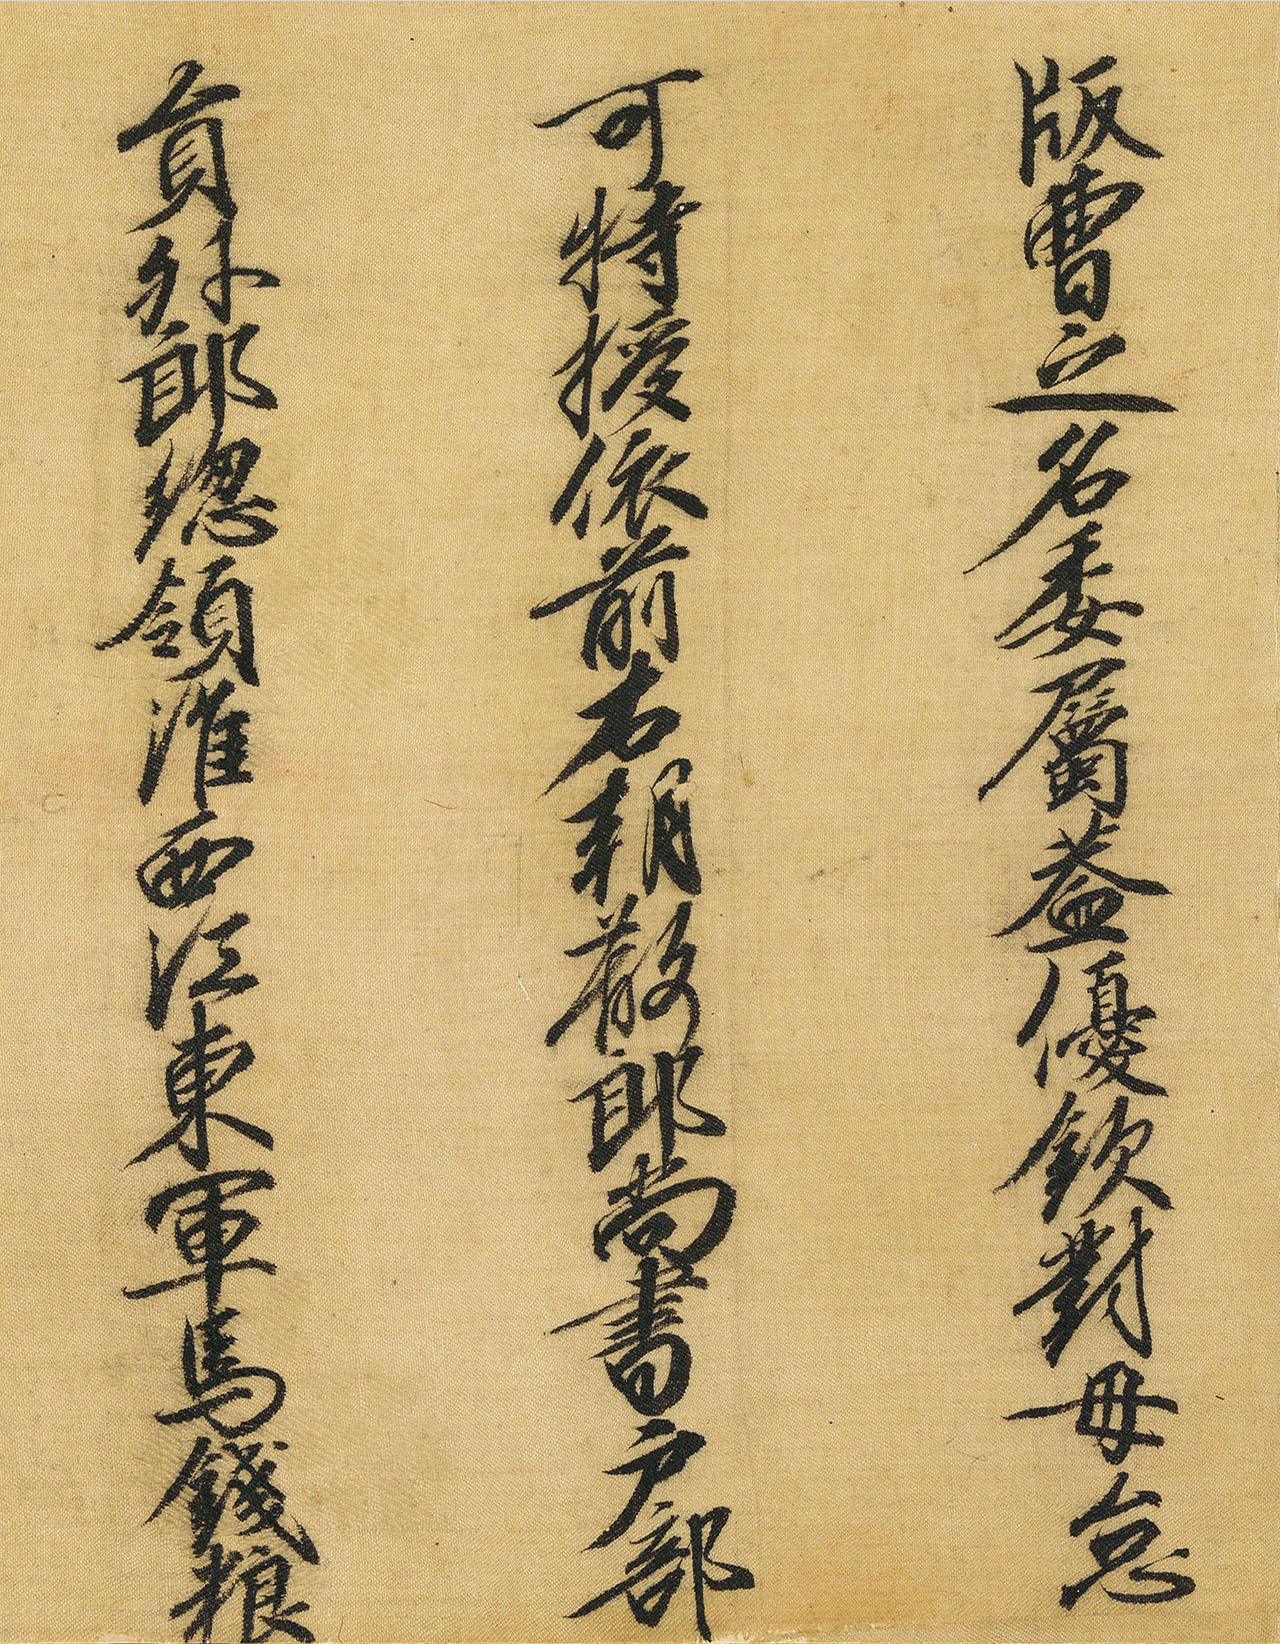 版曹之名委屬葢優欽對毋怠
可特授依前右朝散郎尚書户部
員外郎總領淮西江東軍馬錢粮